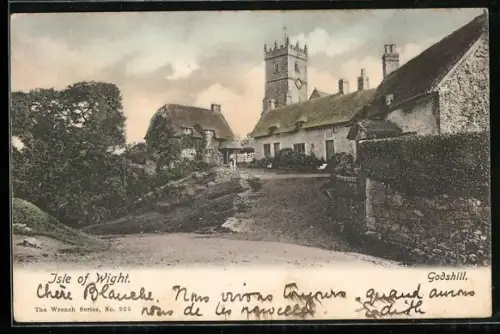 Isle of Wight.
Godshill.
The Wrench Series, No. 925
Chère Blanche. Nous vivons toujours quand aurons
nous de tes nouvelles Edith